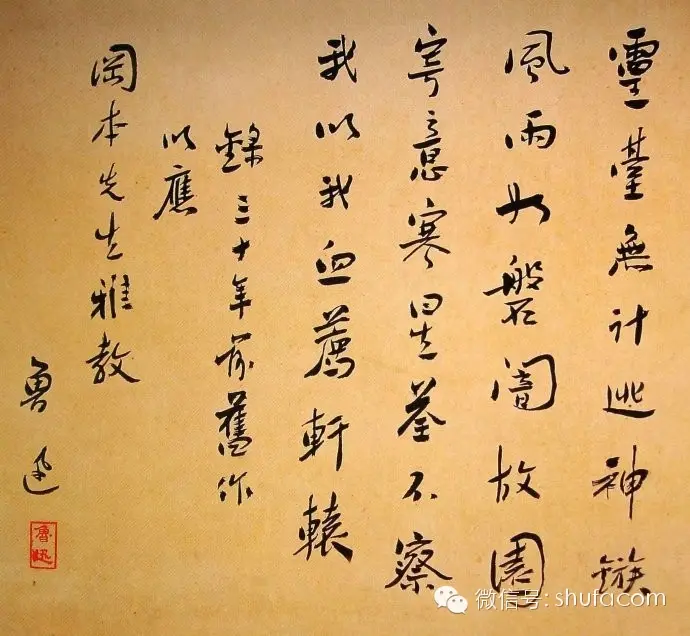 靈臺無計逃神鏃
風雨如磐闇故園
寄意寒星荃不察
我以我血薦軒轅
錄三十年前舊作
以應
岡本先生雅教
魯迅
魯迅
微信号: shufacom